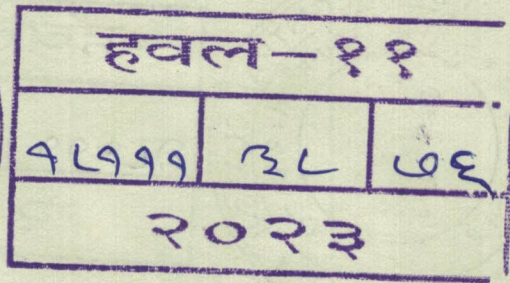 हवल-११
१८१११ ३८ ७६
२०२३